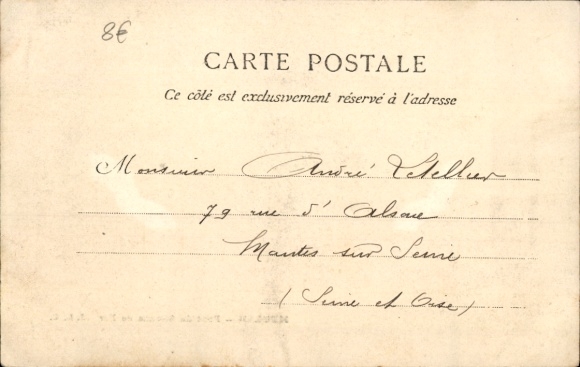 8€
CARTE POSTALE
Ce côté est exclusivement réservé à l'adresse
Monsieur André Letellier
79 rue d'Alsace
Mantes sur Seine
(Seine et Oise)